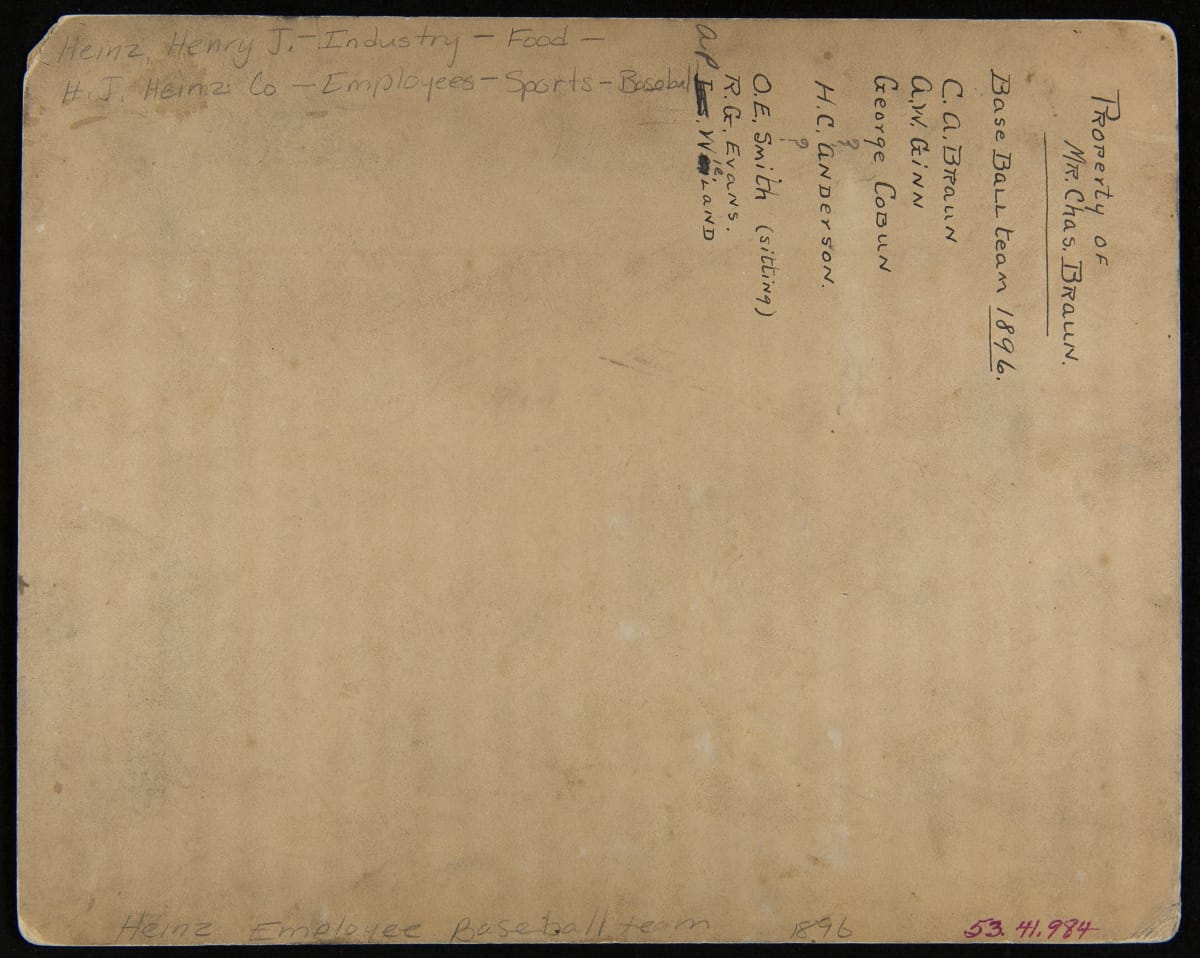 Heinz, Henry J. - Industry - Food -
H. J. Heinz Co - Employees - Sports - Baseball
Property of
Mr. Chas. Braun.
Base Ball team 1896.
C. A. Braun
A. W. Ginn
George Cobun
?
H. C. Anderson.
?
O. E. Smith (sitting)
R. G. Evans.
AP Wieland
Heinz Employee Baseball team 1896
53.41.984